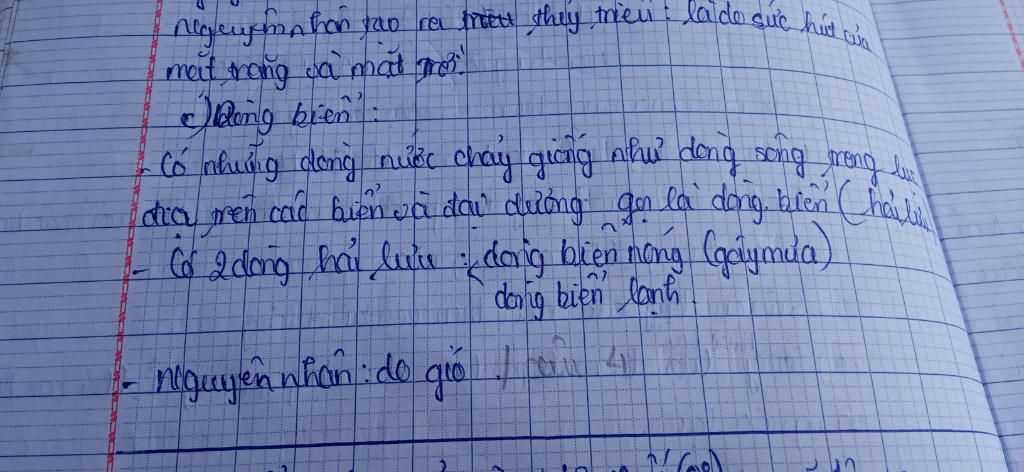 nguyên nhân tạo ra thủy triều : là do sức hút của
mặt trăng và mặt trời.
c) Dòng biển :
- Có những dòng nước chảy giống như dòng sông trong lục
địa, trên các biển và đại dương gọi là dòng biển ( hải lưu
- Có 2 dòng hải lưu : dòng biển nóng (gây mưa)
dòng biển lạnh
- Nguyên nhân : do gió